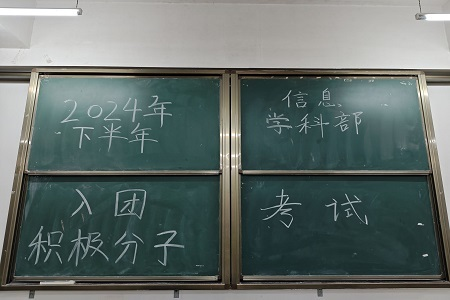 2024年
下半年
信息
学科部
入团
积极分子
考试